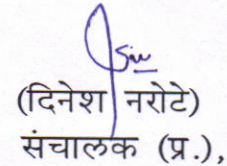 (दिनेश नरोटे)
संचालक (प्र.),